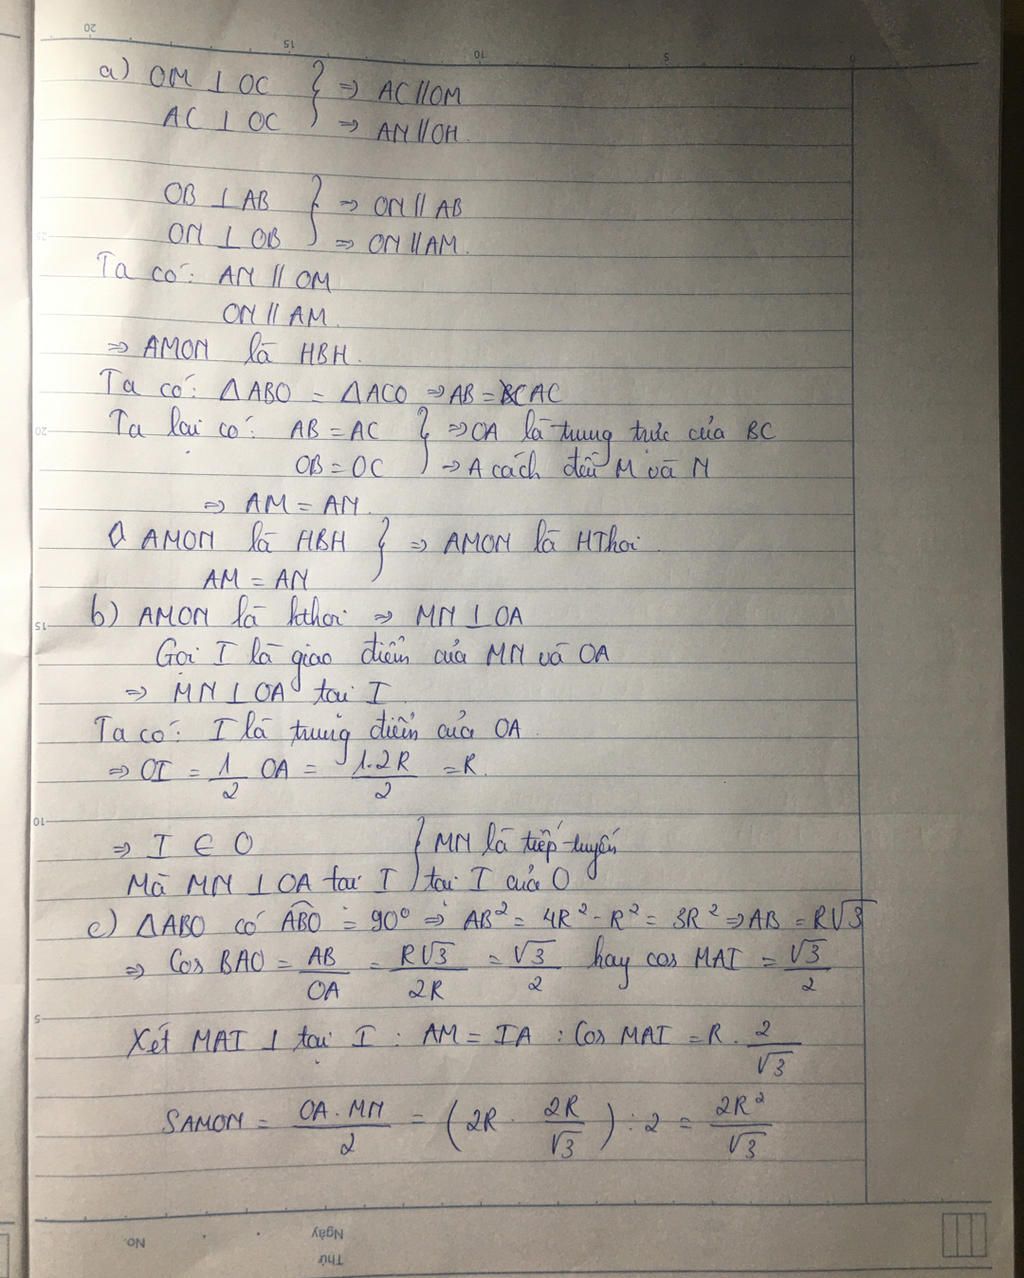 20 15 10 5 0
a) OM ⊥ OC } ⇒ AC // OM
AC ⊥ OC ⇒ AN // OH.
OB ⊥ AB } ⇒ ON // AB
ON ⊥ OB ⇒ ON // AM.
Ta có: AN // OM
ON // AM.
⇒ AMON là HBH.
Ta có: ΔABO = ΔACO ⇒ AB = AC
Ta lại có: AB = AC } ⇒ OA là trung trực của BC
OB = OC ⇒ A cách đều M và N
⇒ AM = AN.
AMON là HBH } ⇒ AMON là HThoi.
AM = AN
b) AMON là hthoi ⇒ MN ⊥ OA
Gọi I là giao điểm của MN và OA
⇒ MN ⊥ OA tại I
Ta có: I là trung điểm của OA.
⇒ OI = 1/2 OA = 1.2R/2 = R.
⇒ I ∈ O } MN là tiếp tuyến
Mà MN ⊥ OA tại I tại I của O
c) ΔABO có ABO = 90° ⇒ AB² = 4R² - R² = 3R² ⇒ AB = R√3
⇒ Cos BAO = AB/OA = R√3/2R = √3/2 hay cos MAI = √3/2
Xét MAI ⊥ tại I : AM = IA : Cos MAI = R . 2/√3
SAMON = OA . MN/2 = (2R . 2R/√3) : 2 = 2R²/√3
No.
Ngày
Thứ